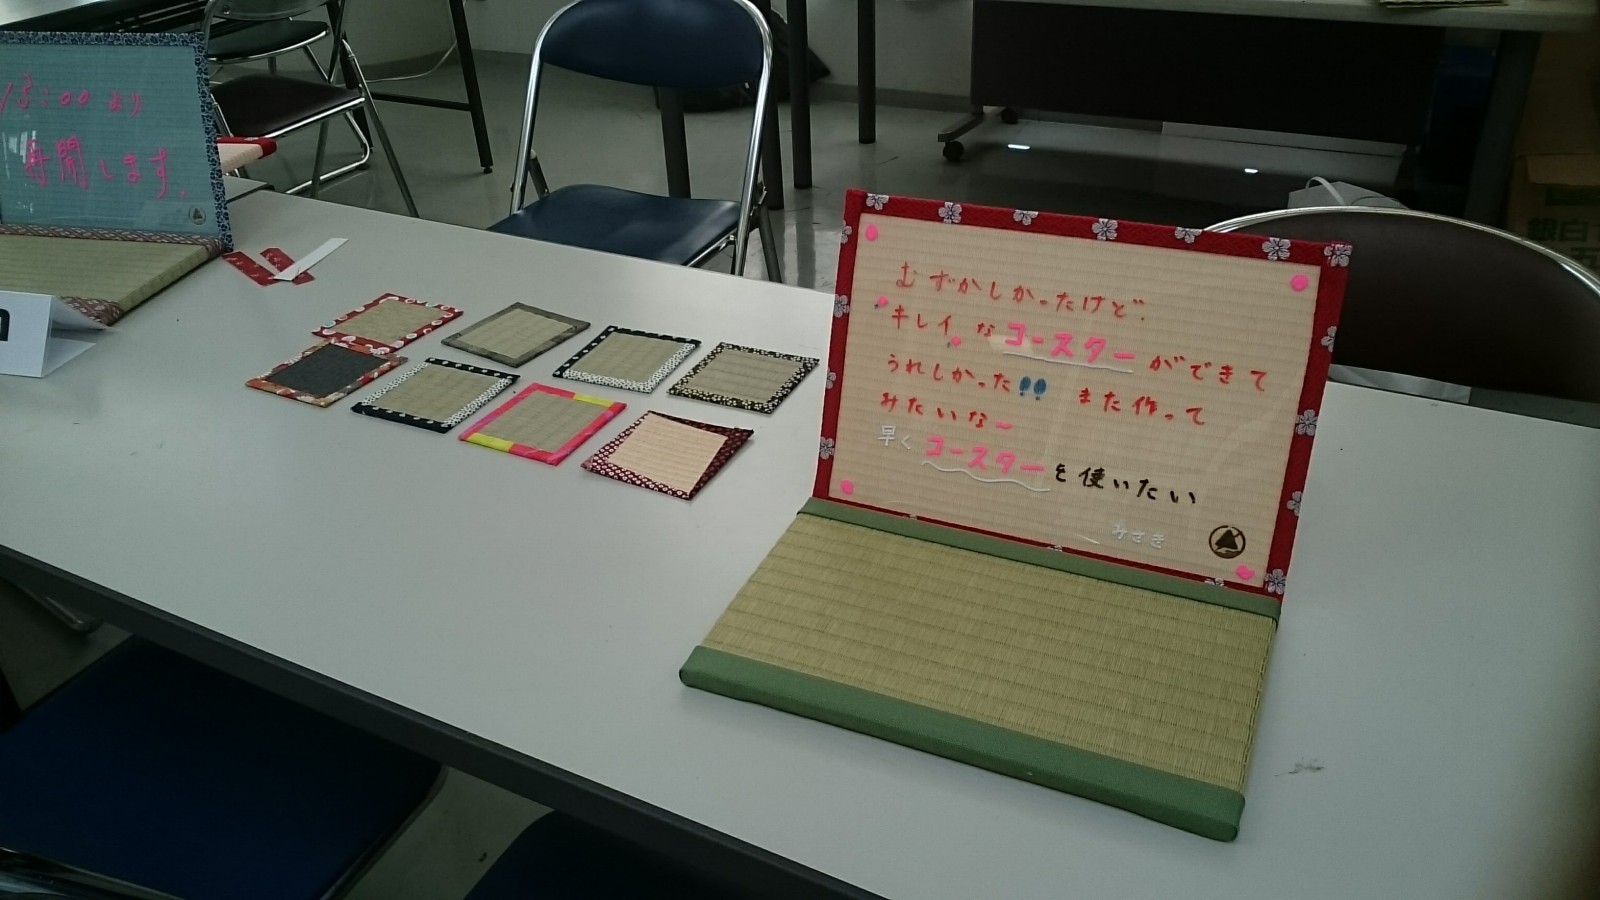 13:00より
再開します.
むずかしかったけど.
"キレイ"なコースターができて
うれしかった!! また作って
みたいなー
早くコースターを使いたい
みさき